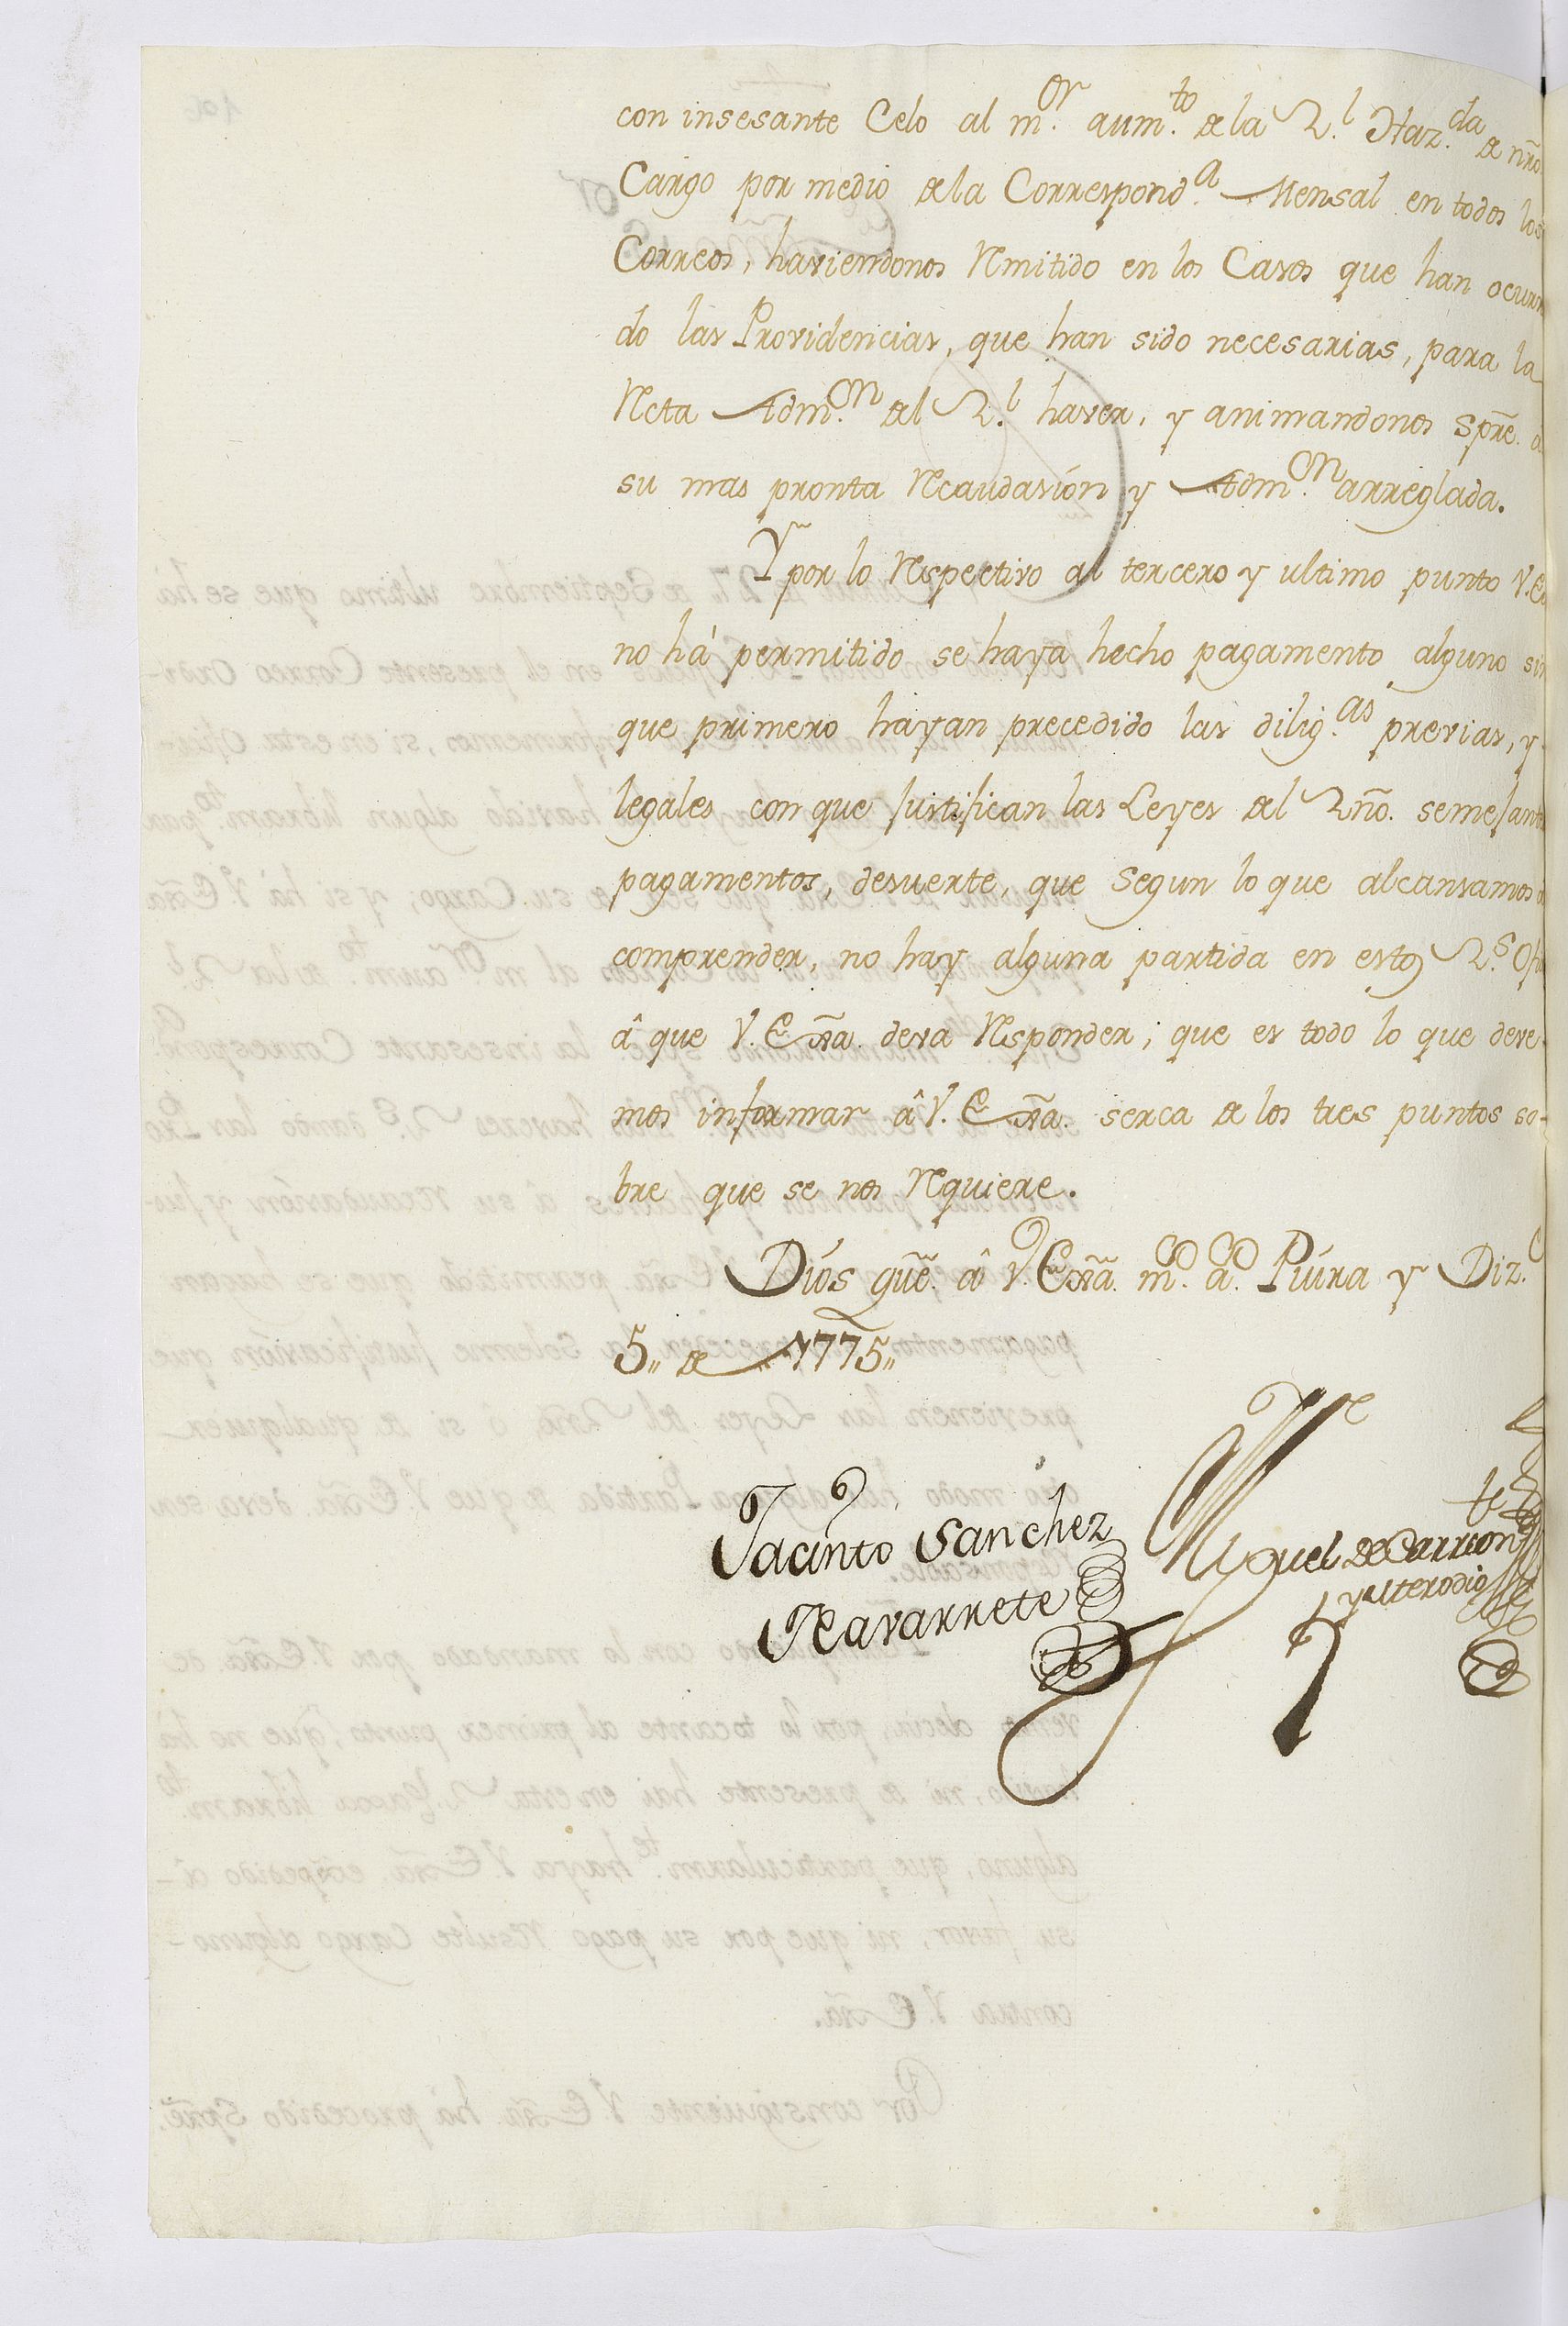 con insesante Celo al m.or aum.to de la R.l Haz.da de nro.
Cargo por medio de la Correspond.a Mensal en todos los
Correos, haviendonos Remitido en los Casos que han ocurri
do las Providencias, que han sido necesarias, para la
Recta Adm.on del R.l haver, y animandonos spre. a
su mas pronta Recaudasión y Adm.on arreglada.
Y por lo Respectivo al tercero y ultimo punto V.E.
no há permitido se haya hecho pagamento alguno sin
que primero hayan precedido las dilig.as previas, y
legales con que Justifican las Leyes del Rño. semejantes
pagamentos, desuerte, que segun lo que alcansamos á
comprender, no hay alguna partida en estos R.s Ofi
â que V. Exã. deva Responder; que es todo lo que deve-
mos informar â V. Exã. serca de los tres puntos so-
bre que se nos Requiere.
Dios gũe. â V. Exã. m.s a.s Piúra y Diz.e
5,, de 1775,,
Jacinto Sanchez
Navarrete
Miguel de Carrion
y Merodio